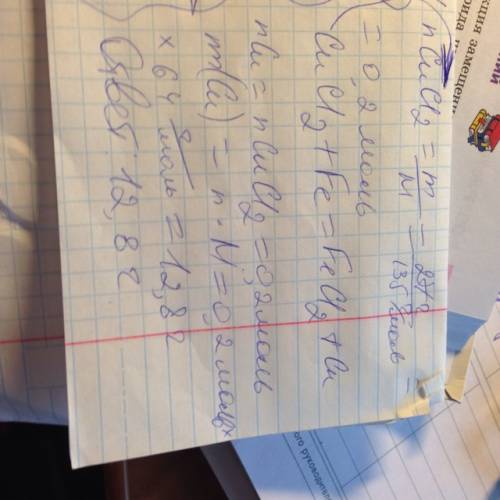 nCuCl2 = m/M = 27 г/135 г/моль =
= 0,2 моль
CuCl2 + Fe = FeCl2 + Cu
nCu = nCuCl2 = 0,2 моль
m(Cu) = n · M = 0,2 моль ×
× 64 г/моль = 12,8 г
Ответ: 12,8 г
кция замещени
рида
ого руководител